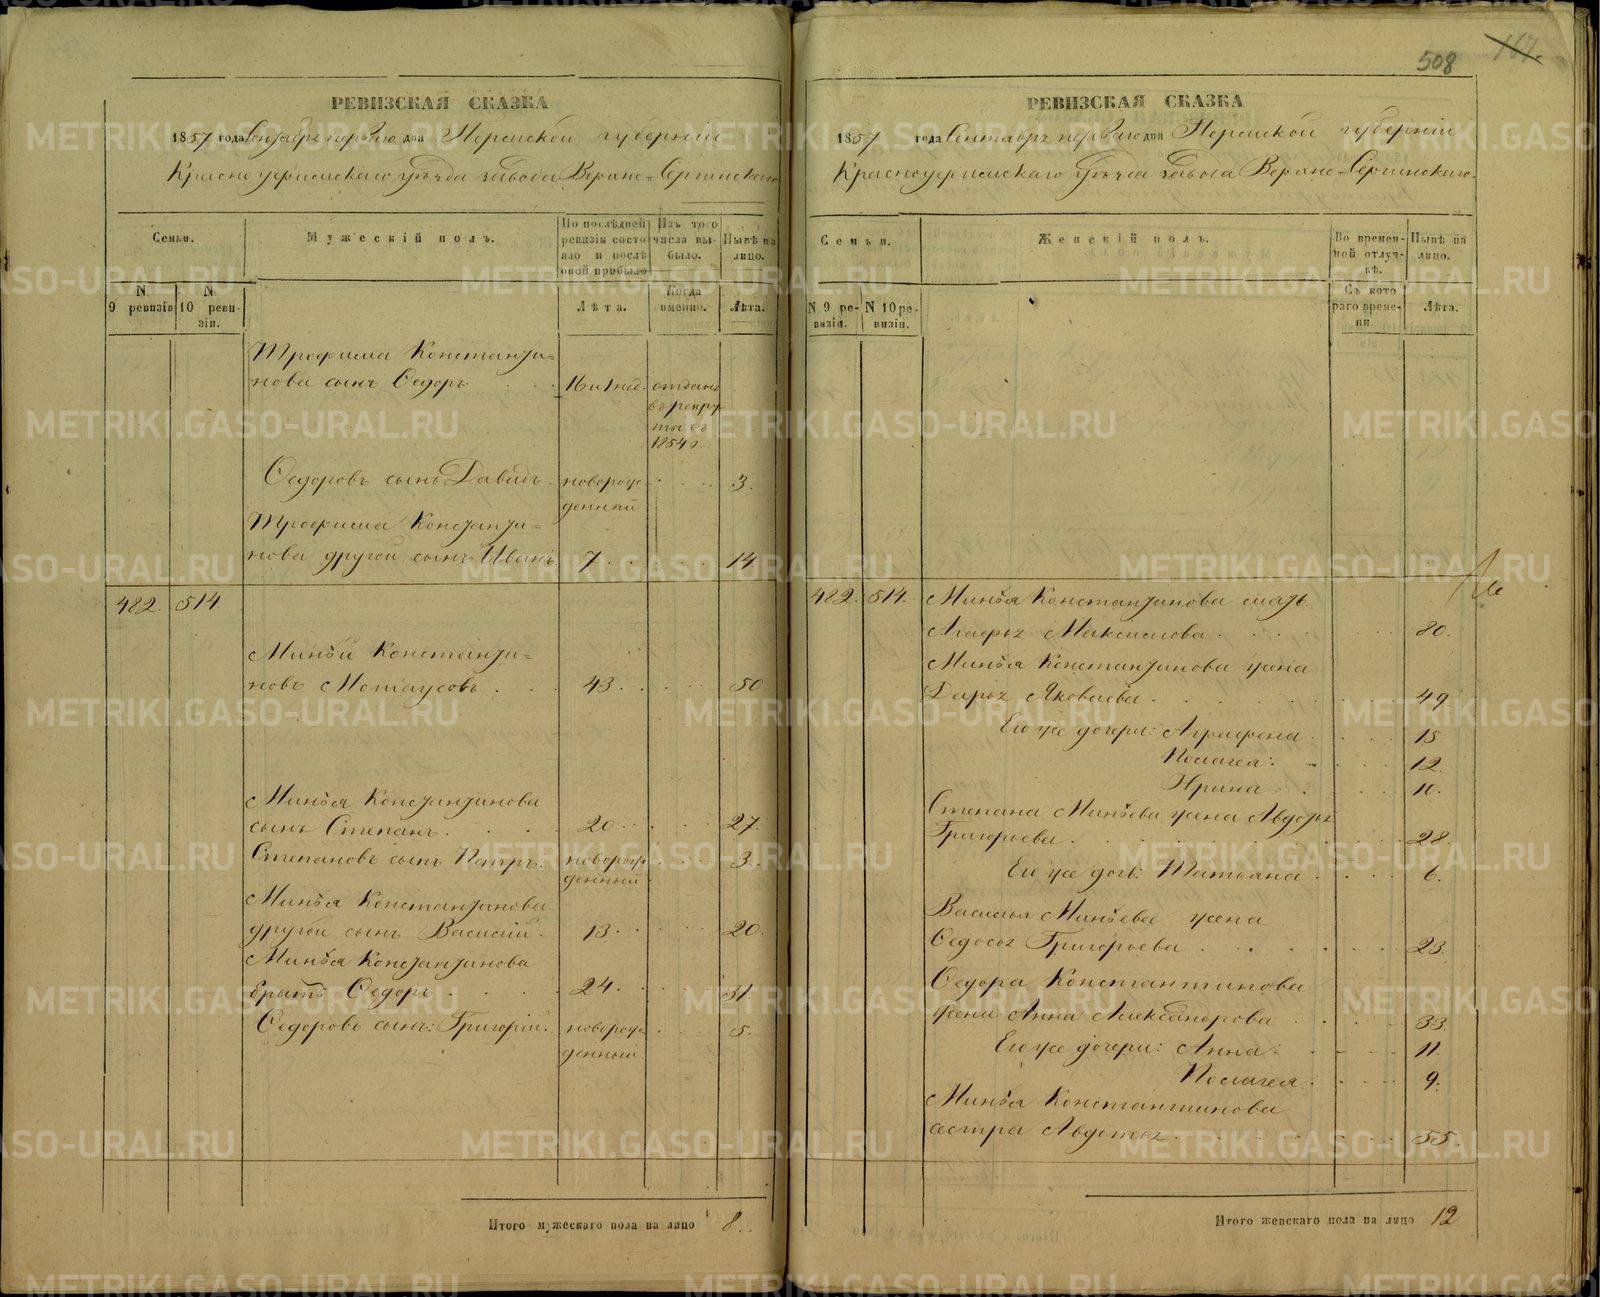 508
167.
РЕВИЗСКАЯ СКАЗКА
1857 года Сентября первого дня Пермской губернiи
Красноуфимскаго уѣзда завода Верхне-Сергинскаго
Семьи.
Мужескiй полъ.
По послѣдней ревизiи состояло и послѣ оной прибыло
Изъ того числа выбыло.
Нынѣ на лицо.
N. 9 ревизiи
N. 10 ревизiи.
Лѣта.
Когда именно.
Лѣта.
Трофима Константи-
нова сынъ Ѳедоръ. 16 и 1 нед. отданъ
въ рекру
ты въ
1854 г.
Ѳедоровъ сынъ Давидъ. новорож 3.
денный
Трофима Константи-
нова другой сынъ Иванъ 7. 14
482. 514
Минѣй Константи-
новъ 43. 50
Минѣя Константинова
сынъ Степанъ. 20. 27.
Степановъ сынъ Петръ. новорож 3.
денный.
Минѣя Константинова
другой сынъ Василiй. 13. 20.
Минѣя Константинова
братъ Ѳедоръ. 24. 31
Ѳедоровъ сынъ: Григорiй. новорож 5.
денный
Итого мужескаго пола на лицо 8.
РЕВИЗСКАЯ СКАЗКА
1857 года Сентября первого дня Пермской губернiи
Красноуфимскаго уѣзда завода Верхне-Сергинскаго.
Семьи.
Женскiй полъ.
Во временной отлучкѣ.
Нынѣ на лицо.
N 9 ревизiи.
N 10 ревизiи.
Съ котораго времени.
Лѣта.
482. 514. Минѣя Константинова мать
Максимова. 80.
Минѣя Константинова жена
Дарья Яковлева. 49
Его же дочери: Аграфена. 15
Пелагея. 12.
Ирина. 10.
Степана Минѣева жена Авдотья
Григорьева. 28.
Его же дочь: Татьяна. 6.
Василья Минѣева жена
Ѳедосья Григорьева. 23.
Ѳедора Константинова
жена Анна Александрова 33.
Его же дочери: Анна. 11.
Пелагея. 9.
Минѣя Константинова
сестра Авдотья. 55.
Итого женскаго пола на лицо 12
METRIKI.GASO-URAL.RU